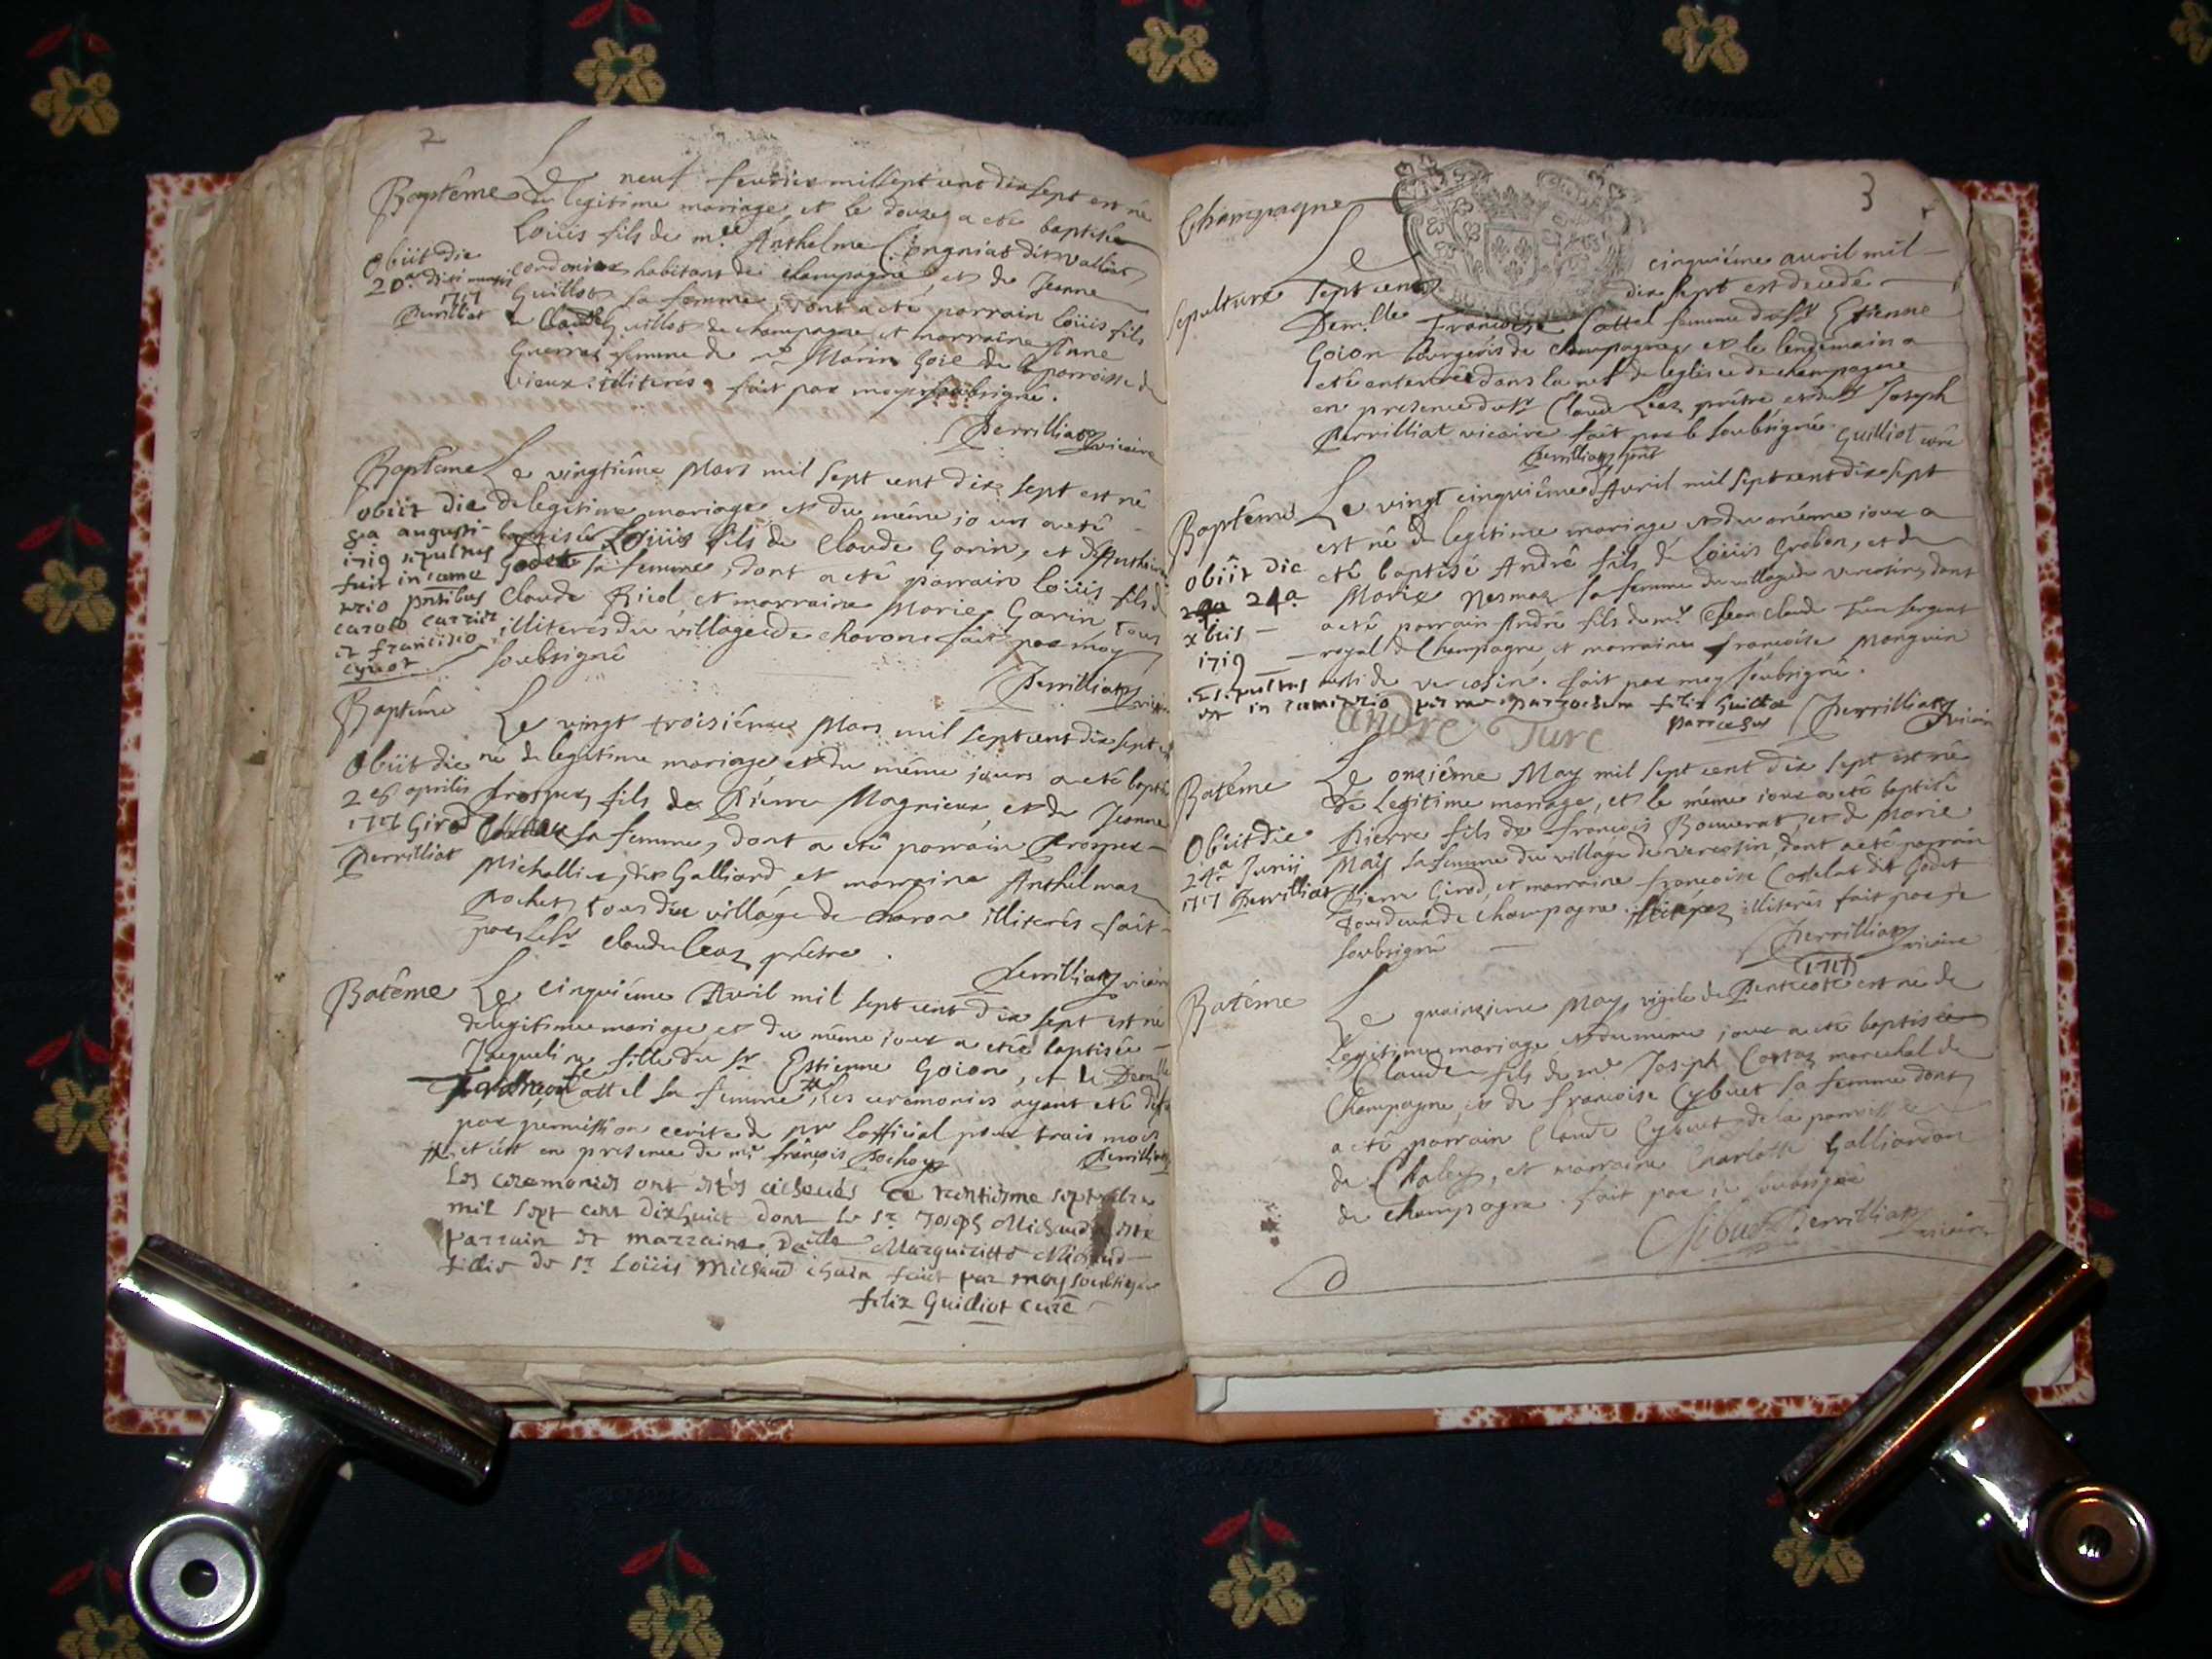 2
Baptême Le neuf feurier mil sept cent dix sept est né
de legitime mariage, et le douze a eté baptisé
Loüis fils de me. Anthelme dit
Obiit die
20a.
1717
Perrilliat
cordonier habitant de champagne, et de Jeanne
Guillot sa femme, dont a eté parrain loüis fils
de Claude Guillot de champagne et marraine Anne
femme de me Marin Goie de la parroisse de
vieux illiterés. fait par moy soubsigné.
Perrilliat vicaire
Baptême Le vingtiéme Mars mil sept cent dix sept est né
obiit die
8a augusti
1719 sepultus
fuit in
carolo carrier
et francisco
cyuot
de legitime mariage et du même jour a eté
baptisé Loüis fils de Claude Garin, et d'
Godet sa femme, dont a eté parrain loüis fils de
Claude et marraine Marie Garin tous
illiterés du village de charon fait par moy
soubsigné
Perrilliat vicaire
Baptéme
Le vingt troisiéme Mars mil sept cent dix sept est
Obiit die
28 aprilis
1717 Girod
Perrilliat
né de legitime mariage, et du même jours a eté baptisé
prosper, fils de Pierre Magnieux, et de Jeanne
sa femme, dont a eté parrain Prosper
Michallier, dit Galliard, et marraine Anthelmaz
pochet tous du village de charon illiterés fait
par le Sr Claude Leaz prêtre.
Perrilliat vicaire
Batême Le cinquiéme Avril mil sept cent dix sept est né
de legitime mariage, et du même jour a eté baptisée
Jaqueline fille du Sr Estienne Goion, et de Demlle
Francoise Cattel sa femme, les ceremonies ayant eté
par permission ecrite de mr Lofficial pour trois mois
et c'est en presence de me françois pochoy
Perrilliat
Les ceremonies ont étés acheués ce septembre
mil sept cent dix huict dont le Sr Joseph Michaud a été
parrain et marraine Dlle Margueritte Michaud
fillie de Sr Loüis Michaud fait par moy soubsigné
felix Guilliot curé
3
Champagne
sepulture
Le cinquiéme auril mil
sept cent dix sept est decedé
Demlle Francoise Cattel femme du Sr Etienne
Goion bourgeois de champagne, et le lendemain a
eté enterrée dans la nef de leglise de champagne
en presence du Sr Claude Leaz prêtre et du Sr Joseph
Perrilliat vicaire fait par le soubsigné
Guilliot curé
Perrilliat pnt
Baptême
Le vingt cinquiême d'Avril mil sept cent dix sept
est né de legitime mariage et du même jour a
Obiit die
24a
xbris
1719
eté baptisé André fils de Loüis Grobon, et de
Marie Nesmoz sa femme du village de vercosin, dont
a eté parrain André fils de me. Jean claude Turc sergent
royal de Champagne, et marraine francoise Monguin
de vercosin. fait par moy soubsigné.
sepultus
est in cimiterio per me parrochum felix Guilliot
parrochus
Perrilliat vicaire
andre Turc
Batême
Le onziéme May mil sept cent dix sept est né
de Legitime mariage, et le même jour a eté baptisé
Obiit die
24a Junij
1717 Perrilliat
Pierre fils de francois Bouuerat, et de Marie
May sa femme du village de vercosin, dont a eté parrain
Pierre Girod, et marraine francoise Castelat dit Godet
Tous deux de champagne illiterés fait par je
soubsigné
Perrilliat vicaire
(1717)
Batême
Le quinziéme May, vigile de Pentecote est né de
Legitime mariage et du même jour a eté baptisé
Claude fils de me. Joseph Cortaz marechal de
Champagne, et de francoise Cybuet sa femme dont
a eté parrain Claude Cybuet de la parroisse
de Chaley, et marraine Charlotte Galliardon
de champagne. fait par je soubsigné
Cibuet Perrilliat vicaire